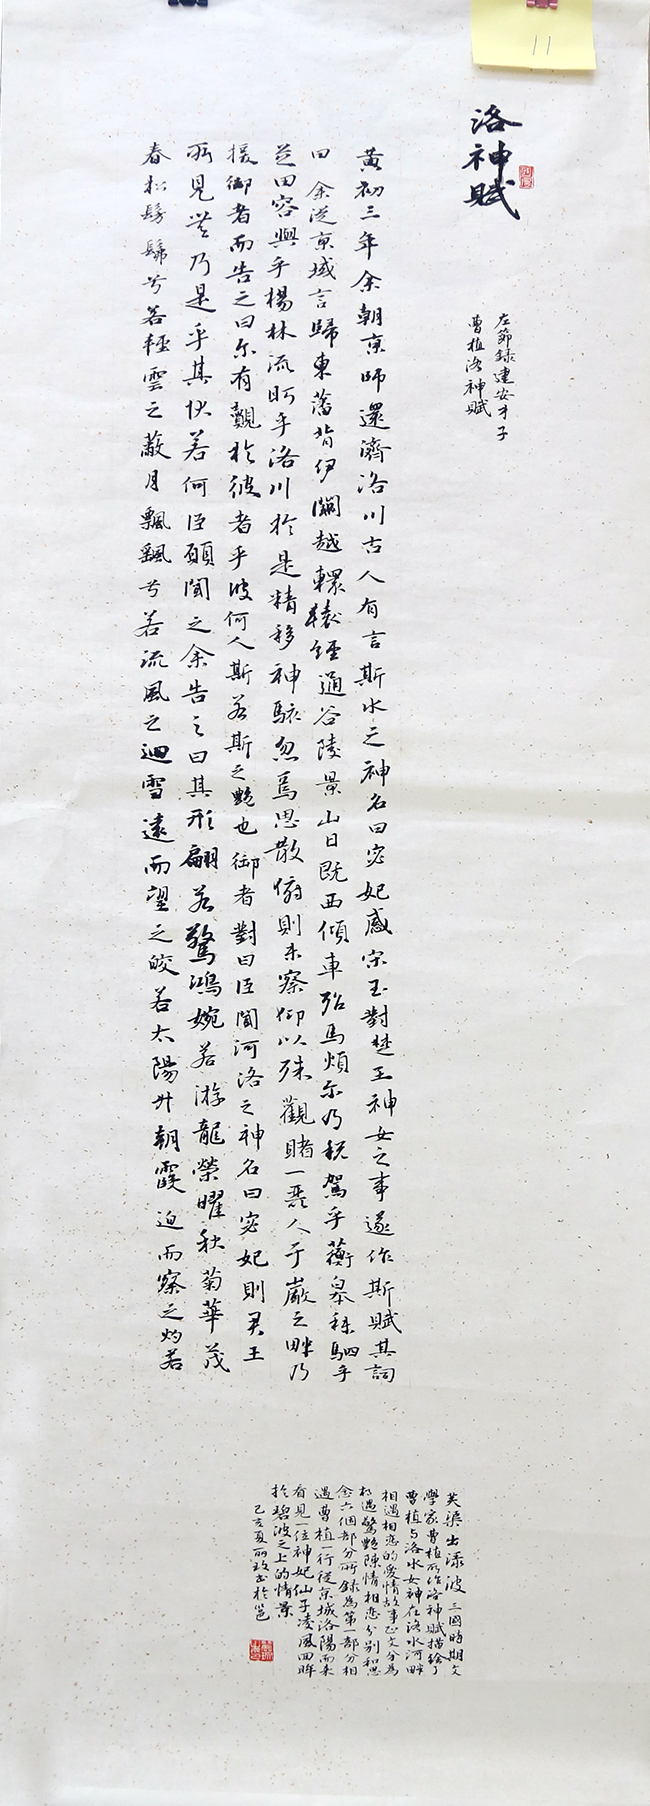 11
洛神賦
左節録建安才子
曹植洛神賦
黃初三年余朝京師還濟洛川古人有言斯水之神名曰宓妃感宋玉對楚王神女之事遂作斯賦其詞
曰余從京域言歸東藩背伊闕越轘轅經通谷陵景山日既西傾車殆馬煩尔乃稅駕乎蘅皋秣駟乎
芝田容與乎楊林流眄乎洛川於是精移神駭忽焉思散俯則未察仰以殊觀睹一麗人于巖之畔乃
援御者而告之曰尔有覿於彼者乎彼何人斯若斯之艷也御者對曰臣聞河洛之神名曰宓妃則君王
所見無乃是乎其狀若何臣願聞之余告之曰其形翩若驚鴻婉若游龍榮曜秋菊華茂
春松髣髴兮若輕雲之蔽月飄颻兮若流風之迴雪遠而望之皎若太陽升朝霞迫而察之灼若
芙渠出淥波三國時期文
學家曹植所作洛神賦描繪了
曹植与洛水女神在洛水河畔
相遇相恋的愛情故事正文分為
相遇驚艷陳情相恋分别和思
念六個部分所録為第一部分相
遇曹植一行從京城洛陽而來
看見一位神妃仙子凌風回眸
於碧波之上的情景
己亥夏丽玫书於邕